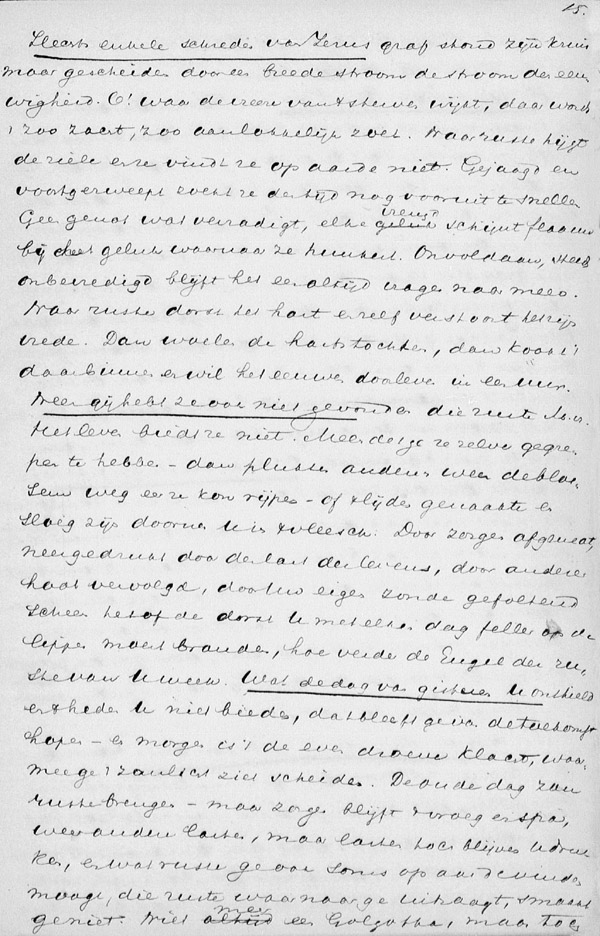 15.
Slechts enkele schreden van Jezus graf stond zijn kruis
maar gescheiden door een breede stroom de stroom der eeu
wigheid. O! waar de vrees van 't sterven wijkt, daar wordt
't zoo zacht, zoo aanlokkelijk zoet. Naar ruste hijgt
de ziele en ze vindt ze op aarde niet. Gejaagd en
voortgezweept zoekt ze den tijd nog vooruit te snellen
Geen genot wat verzadigt, elke vreugd schijnt flaauw
bij het geluk waarnaar ze hunkert. Onvoldaan, steeds
onbevredigd blijft het een altijd vragen naar meer.
Naar ruste dorst het hart en zelf verstoort het zijn
vrede. Dan woelen de hartstochten, dan kookt 't
daarbinnen en wil het eeuwen doorleven in een uur.
Neen gij hebt ze ook niet gevonden die ruste M. H.
Het leven biedt ze niet. Meendet ge ze zelve gegre
pen te hebben – dan plukten anderen weer de bloe
sem weg eer ze kon rijpen – of 't lijden genaakte en
sloeg zijn doornen U in 't vleesch. Door zorgen afgemat,
neergedrukt door den last des levens, door anderer
haat vervolgd, door uw eigen zonde gefolterd
scheen het of de dorst U met elken dag feller op de
lippen moest branden, hoe verder de Engel der ru
ste van U week. Wat de dag van gisteren U onthield
en 't heden U niet biedt, dat bleeft ge van de toekomst
hopen – en morgen is 't de even droeve klacht, waar
mee ge 't zonlicht ziet scheiden. De oude dag zou
ruste brengen – maar zorgen blijft 't vroeg en spa,
weer andere lasten, maar lasten toch blijven U druk
ken, en wat ruste ge ook soms op aarde vinden
moogt, die ruste waarnaar ge uitzaagt, smaakt
ge niet. Niet meer een Golgotha, maar toch